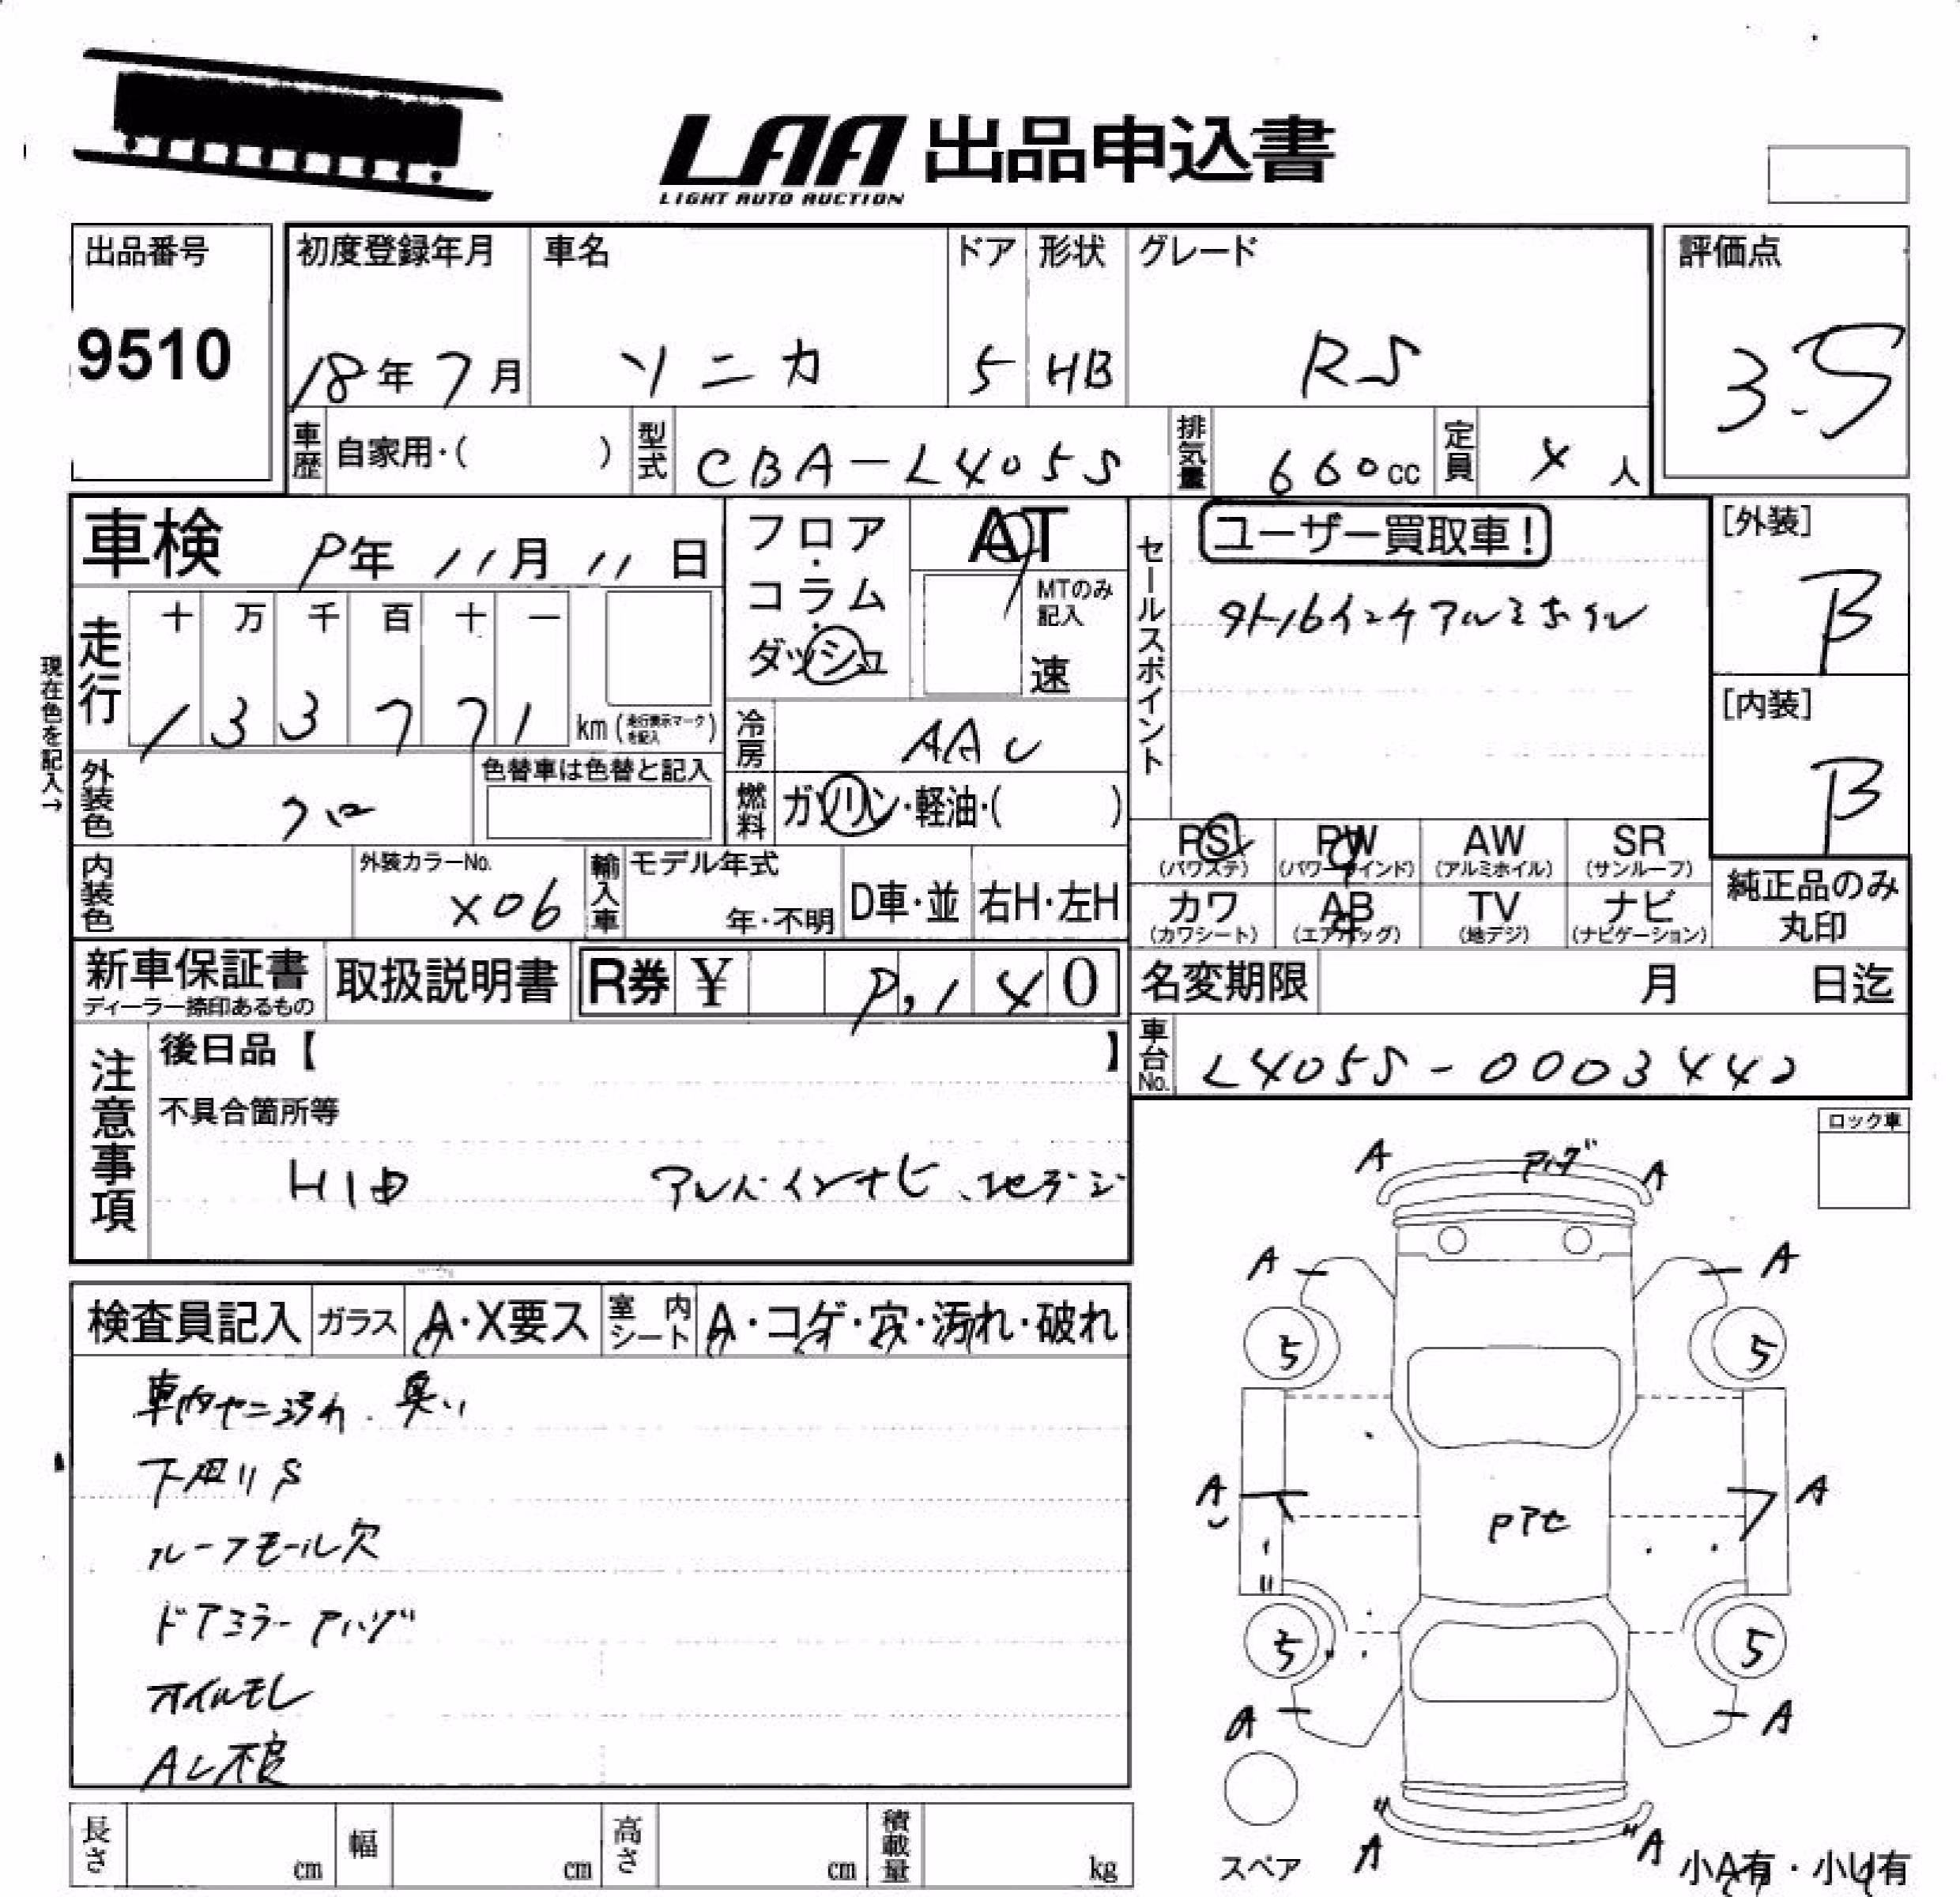 LAA 出品申込書
LIGHT AUTO AUCTION
出品番号
9510
初度登録年月
18年7月
車名
ソニカ
ドア
5
形状
HB
グレード
RS
評価点
3.5
車歴
自家用・( )
型式
CBA-L405S
排気量
660cc
定員
4人
車検
年11月11日
走行
十 万 千 百 十 一
1 3 3 7 7 1
km (走行表示マークを記入)
現在色を記入→
外装色
クロ
色替車は色替と記入
内装色
外装カラーNo.
X06
輸入車
モデル年式
年・不明
D車・並
右H・左H
フロア・コラム・ダッシュ
AT
MTのみ記入
速
冷房
AAC
燃料
ガソリン・軽油・( )
セールスポイント
ユーザー買取車!
外16インチアルミホイル
PS
(パワステ)
PW
(パワーウインド)
AW
(アルミホイル)
SR
(サンルーフ)
カワ
(カワシート)
AB
(エアバッグ)
TV
(地デジ)
ナビ
(ナビゲーション)
[外装]
B
[内装]
B
純正品のみ
丸印
新車保証書
ディーラー捺印あるもの
取扱説明書
R券 ¥
,140
名変期限
月 日迄
車台No.
L405S-0003442
注意事項
後日品【 】
不具合箇所等
HID アルパインナビ、地デジ
ロック車
検査員記入
ガラス
A・X要ス
室内シート
A・コゲ・穴・汚れ・破れ
車内ヤニ汚れ、臭い
下廻りS
ルーフモール欠
ドアミラーアハゲ
オイルモレ
AC不良
A アハゲ A
A A
5 5
A A
Pアセ
5 5
A A
スペア
A A
小A有・小U有
長さ cm
幅 cm
高さ cm
積載量 kg